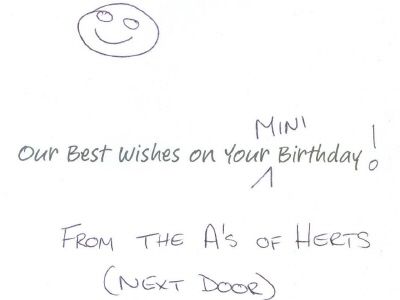 Our Best Wishes on Your MINI Birthday!
FROM THE A'S OF HERTS
(NEXT DOOR)